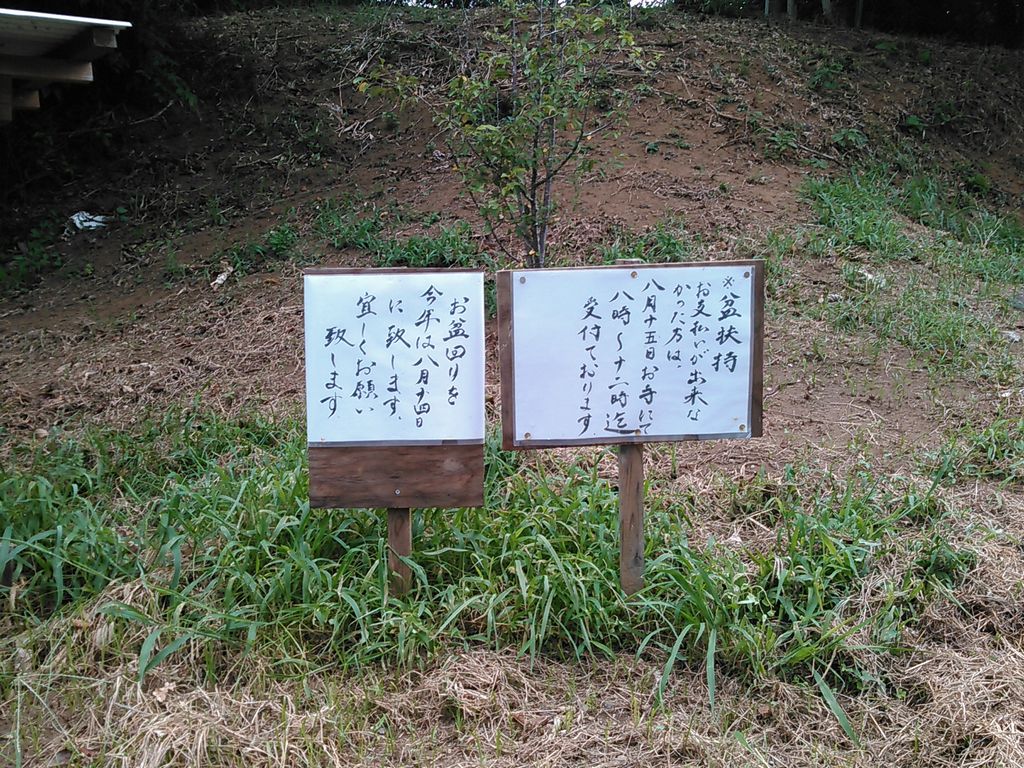 ※盆扶持
お支払いが出来な
かった方は、
八月十五日お寺にて
八時～十二時迄
受付ております。
お盆回りを
今年は八月十四日
に致します。
宜しくお願い
致します。